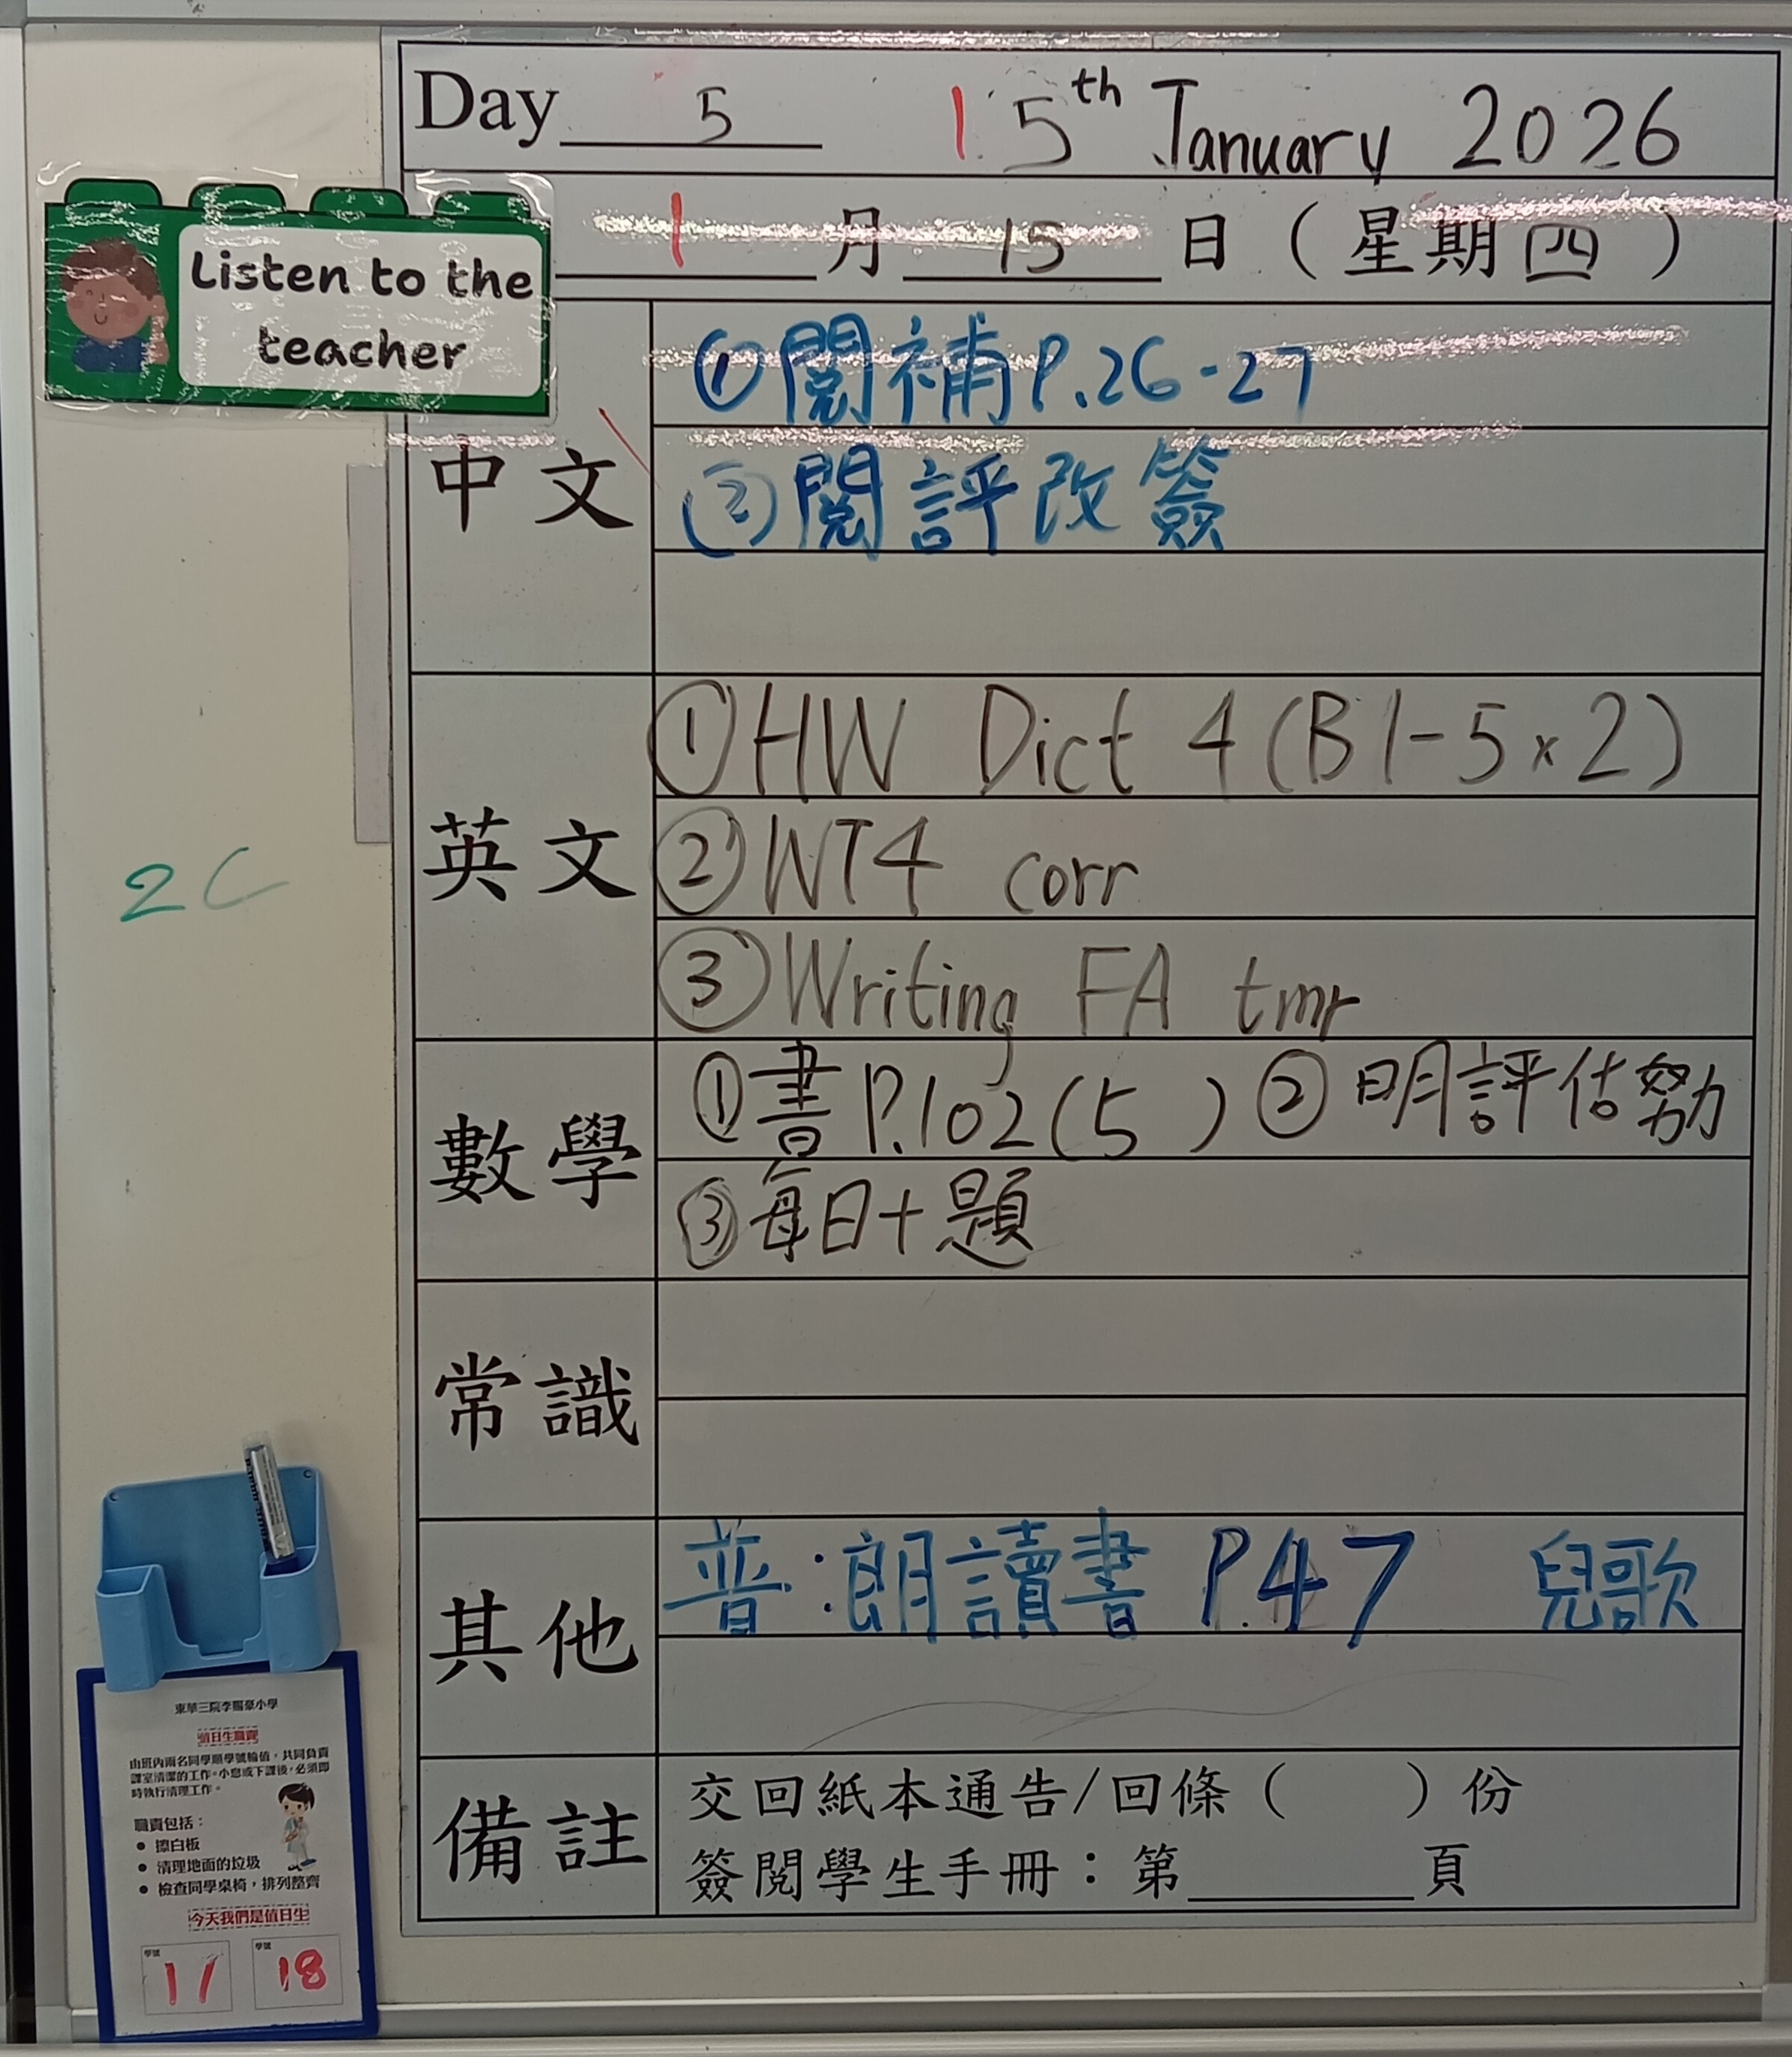 Day 5 15th January 2026
1月15日（星期四）
Listen to the
teacher
中文
①閱補P.26-27
②閱評改簽
英文
①HW Dict 4 (B1-5×2)
②WT4 corr
③Writing FA tmr
數學
①書P.102(5 ) ②明評估勞
③每日十題
常識
其他
普:朗讀書 P.47 兒歌
備註
交回紙本通告/回條（ ）份
簽閱學生手冊：第____頁
2C
東華三院李賜豪小學
值日生職責
由班內兩名同學順學號輪值，共同負責
課室清潔的工作。小息或下課後，必須即
時執行清理工作。
職責包括：
● 擦白板
● 清理地面的垃圾
● 檢查同學桌椅，排列整齊
今天我們是值日生
學號 學號
17 18